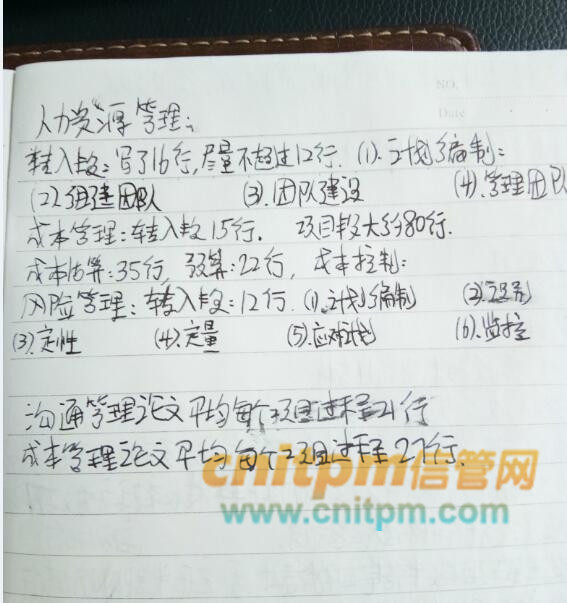 NO.
Date
人力资源管理:
转入段:写了16行,尽量不超过12行. (1).计划编制:
(2).组建团队 (3).团队建设 (4).管理团队
成本管理:转入段15行. 项目段大约80行.
成本估算:35行, 预算:22行, 成本控制:
风险管理:转入段:12行. (1).计划编制 (2).识别
(3).定性 (4).定量 (5).应对计划 (6).监控
沟通管理论文平均每个项目过程21行
成本管理论文平均每个项目过程27行.
cnitpm信管网
www.cnitpm.com